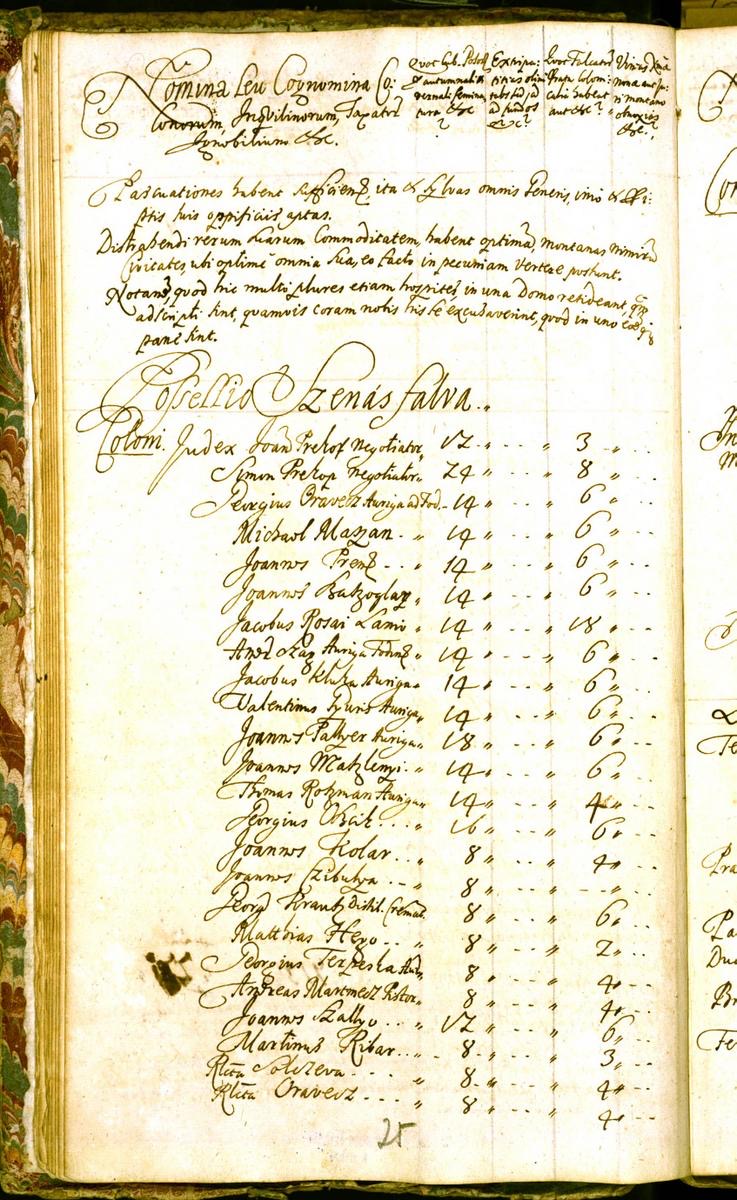 Nomina seu Cognomina Co:
lonorum, Inqvilinorum, Taxator
Ignobilium &c.
Quot Cub. Poson
& autumnalis
vernali semina
tura &c
?
Extirpa:
titius olim
subsed, jd
ad fundos
&c?
Quot Falcator
Prata Coloni:
calia habeat
aut &c?
Vineas
nova aut ju:
ri montano
obnoxias
&c.
Pascuationes habent sufficient ita & sylvas omnis Generis, imo &
ptis suis oppificiis aptas.
Distrahendi rerum suarum Commoditatem, habent optimã, montanas nimirũ
Civitates, ubi optimè omnia sua, eo facto in pecuniam vertere possunt.
Notand, quod hic multi plures etiam hospites, in una Domo resideant, qm
adscripti sint, quamvis coram nobis his se excusaverint, quod in uno
pane sint.
Possessio Szenás falva.
Coloni. Judex Joan Prekop negotiator 12 " - - - " 3 " - -
Simon Prekop negotiator 24 " - - - " 8 " - -
Georgius Oravecz Auriga ad Fod. - 14 " - - - " 6 " - -
Michael Mazan - " 14 " - - - " 6 " - -
Joannes Prenz - - " 14 " - - - " 6 " - -
Joannes " 14 " - - - " 6 " - -
Jacobus Rosai Lanio " 14 " - - - " 18 " - -
Andr Auriga Fodin " 14 " - - - " 6 " - -
Jacobus Kluka Auriga " 14 " - - - " 6 " - -
Valentinus Auriga " 14 " - - - " 6 " - -
Joannes Pallyer Auriga " 18 " - - - " 6 " - -
Joannes Matzlenyi - " 14 " - - - " 6 " - -
Thomas Rotzman Auriga " 14 " - - - " 4 " - -
Georgius - - - " 16 " - - - " 6 " - -
Joannes Kolar - - " 8 " - - - " 4 " - -
Joannes Czibulya - - " 8 " - - - " - - " - -
Georg Krautz Distil. Cremat. 8 " - - - " 6 " - -
Matthias Hego - - " 8 " - - - " 2 " - -
Georgius Terpeska Aur " 8 " - - - " 4 " - -
Andreas Martinecz Pistor " 8 " - - - " 4 " - -
Joannes Szallyo - - " 12 " - - - " 6 " - -
Martinus Ribar - - " 8 " - - - " 3 " - -
Rlcta - - - " 8 " - - - " 4 " - -
Rlcta Oravecz - - - " 8 " - - - " 4 " - -
25